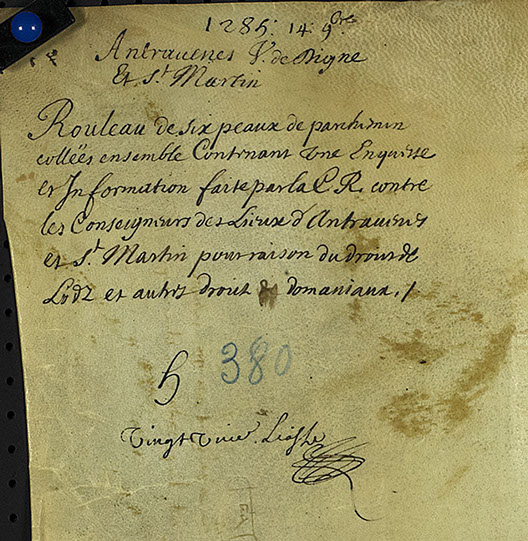 1285: 14: 9bre
Antravenes V. de Digne
Et St Martin
Rouleau de six peaux de parchemin
collées ensemble Contenant Une Enqueste
et Information faite par la C R. contre
les Conseigneurs des Lieux d'Antravenes
et St Martin pour raison du droit de
et autres droits domaniaux. /
h 380
Vingt Liasse